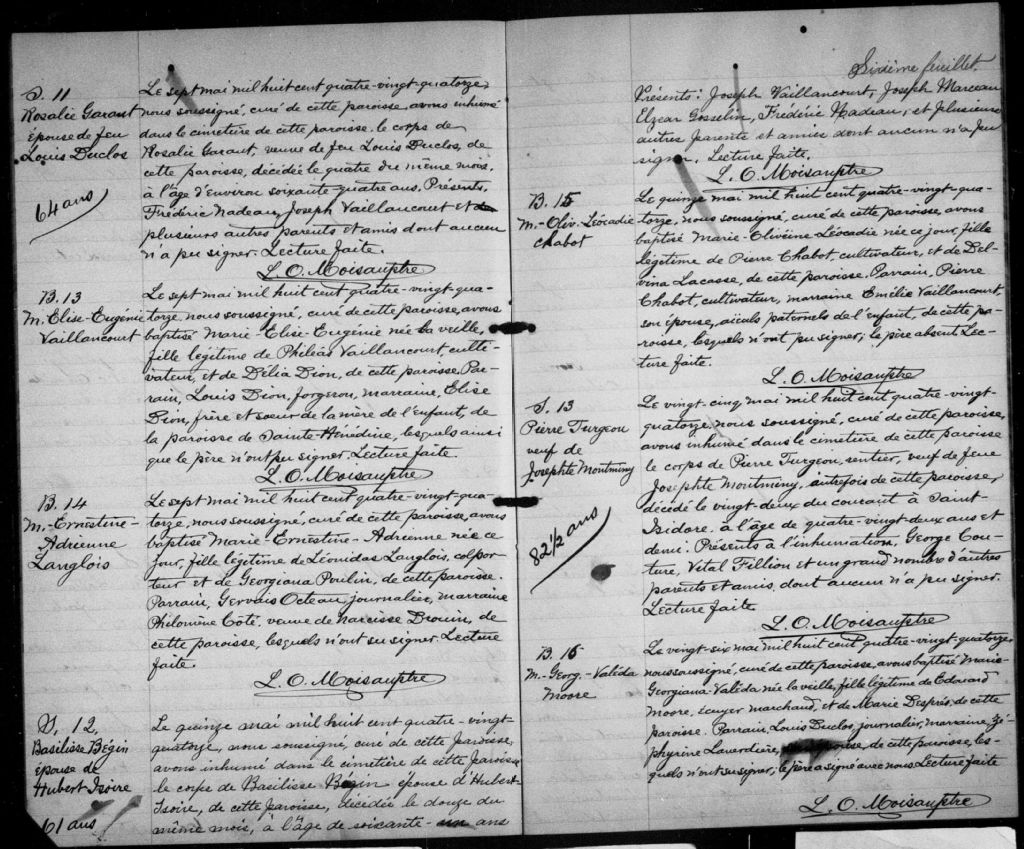 S. 11
Rosalie Garant
épouse de feu
Louis Duclos
64 ans
Le sept mai mil huit cent quatre-vingt-quatorze,
nous soussigné, curé de cette paroisse, avons inhumé
dans le cimetière de cette paroisse, le corps de
Rosalie Garant, veuve de feu Louis Duclos, de
cette paroisse, décédée le quatre du même mois,
à l'âge d'environ soixante-quatre ans. Présents,
Frédéric Nadeau, Joseph Vaillancourt et
plusieurs autres parents et amis dont aucun
n'a pu signer. Lecture faite.
L. O. Moisan, ptre
B. 13
M. Elise-Eugénie
Vaillancourt
Le sept mai mil huit cent quatre-vingt-qua-
torze, nous soussigné, curé de cette paroisse, avons
baptisé Marie-Elise-Eugénie née la veille,
fille légitime de Philéas Vaillancourt, culti-
vateur, et de Délia Dion, de cette paroisse. Par-
rain, Louis Dion, forgeron, marraine, Elise
Dion, frère et soeur de la mère de l'enfant, de
la paroisse de Sainte-Hénédine, lesquels ainsi
que le père n'ont pu signer. Lecture faite.
L. O. Moisan, ptre
B. 14
M.-Ernestine-
Adrienne
Langlois
Le sept mai mil huit cent quatre-vingt-qua-
torze, nous soussigné, curé de cette paroisse, avons
baptisé Marie-Ernestine-Adrienne née ce
jour, fille légitime de Léonidas Langlois, colpor-
teur et de Georgiana Poulin, de cette paroisse.
Parrain, Gervais Octeau, journalier, marraine
Philomène Côté, veuve de Narcisse Drouin, de
cette paroisse, lesquels n'ont su signer. Lecture
faite.
L. O. Moisan, ptre
S. 12,
Basilisse Bégin
épouse de
Hubert Isoire
61 ans
Le quinze mai mil huit cent quatre-vingt-
quatorze, nous soussigné, curé de cette paroisse,
avons inhumé dans le cimetière de cette paroisse
le corps de Basilisse Bégin épouse d'Hubert
Isoire, de cette paroisse, décédée le douze du
même mois, à l'âge de soixante-un ans
Sixième feuillet.
Présents: Joseph Vaillancourt, Joseph Marceau
Elzéar Gosselin, Frédéric Nadeau, et plusieurs
autres parents et amis dont aucun n'a pu
signer. Lecture faite.
L. O. Moisan, ptre
B. 15
M.-Oliv. Léocadie
Chabot
Le quinze mai mil huit cent quatre-vingt-qua-
torze, nous soussigné, curé de cette paroisse, avons
baptisé Marie-Olivéine Léocadie née ce jour, fille
légitime de Pierre Chabot, cultivateur, et de Del-
vina Lacasse, de cette paroisse. Parrain, Pierre
Chabot, cultivateur, marraine Emélie Vaillancourt,
son épouse, aïeuls paternels de l'enfant, de cette pa-
roisse, lesquels n'ont pu signer; le père absent. Lec-
ture faite.
L. O. Moisan, ptre
S. 13
Pierre Turgeon
veuf de
Josephte Montminy
82 1/2 ans
Le vingt-cinq mai mil huit cent quatre-vingt-
quatorze, nous soussigné, curé de cette paroisse,
avons inhumé dans le cimetière de cette paroisse
le corps de Pierre Turgeon, rentier, veuf de feue
Josephte Montminy, autrefois de cette paroisse,
décédé le vingt-deux du courant à Saint-
Isidore à l'âge de quatre-vingt-deux ans et
demi. Présents à l'inhumation, George Cou-
ture, Vital Fillion et un grand nombre d'autres
parents et amis, dont aucun n'a pu signer.
Lecture faite
L. O. Moisan, ptre
B. 16
M.-Georg.-Valéda
Moore
Le vingt-six mai mil huit cent quatre-vingt-quatorze,
nous soussigné, curé de cette paroisse, avons baptisé Marie-
Georgiana-Valéda née la veille, fille légitime de Edouard
Moore, écuyer marchand, et de Marie Després, de cette
paroisse. Parrain, Louis Duclos, journalier, marraine, Zé-
phyrine Laverdière, épouse, de cette paroisse, les-
quels n'ont su signer, le père a signé avec nous. Lecture faite
L. O. Moisan, ptre